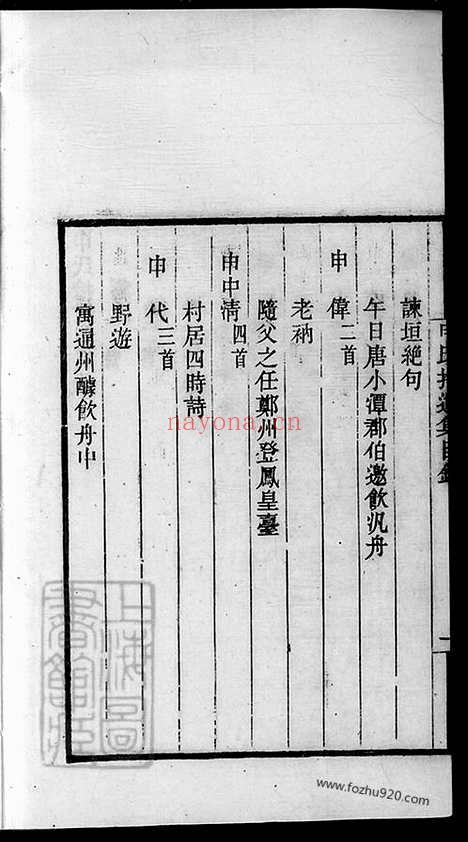 諫垣絶句
午日唐小潭郡伯邀飲汎舟
申偉二首
老衲
隨父之任鄭州登鳳皇臺
申中清四首
村居四時詩
申代三首
野遊
寓通州醵飲舟中
nayona.cn
www.fozhu920.com